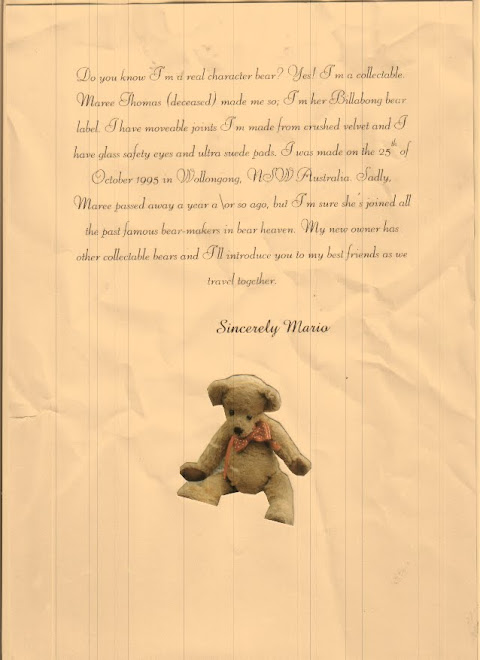 Do you know I'm a real character bear? Yes! I'm a collectable.
Maree Thomas (deceased) made me so; I'm her Billabong bear
label. I have moveable joints I'm made from crushed velvet and I
have glass safety eyes and ultra suede pads. I was made on the 25th of
October 1995 in Wollongong, NSW Australia. Sadly,
Maree passed away a year a\or so ago, but I'm sure she's joined all
the past famous bear-makers in bear heaven. My new owner has
other collectable bears and I'll introduce you to my best friends as we
travel together.
Sincerely Mario